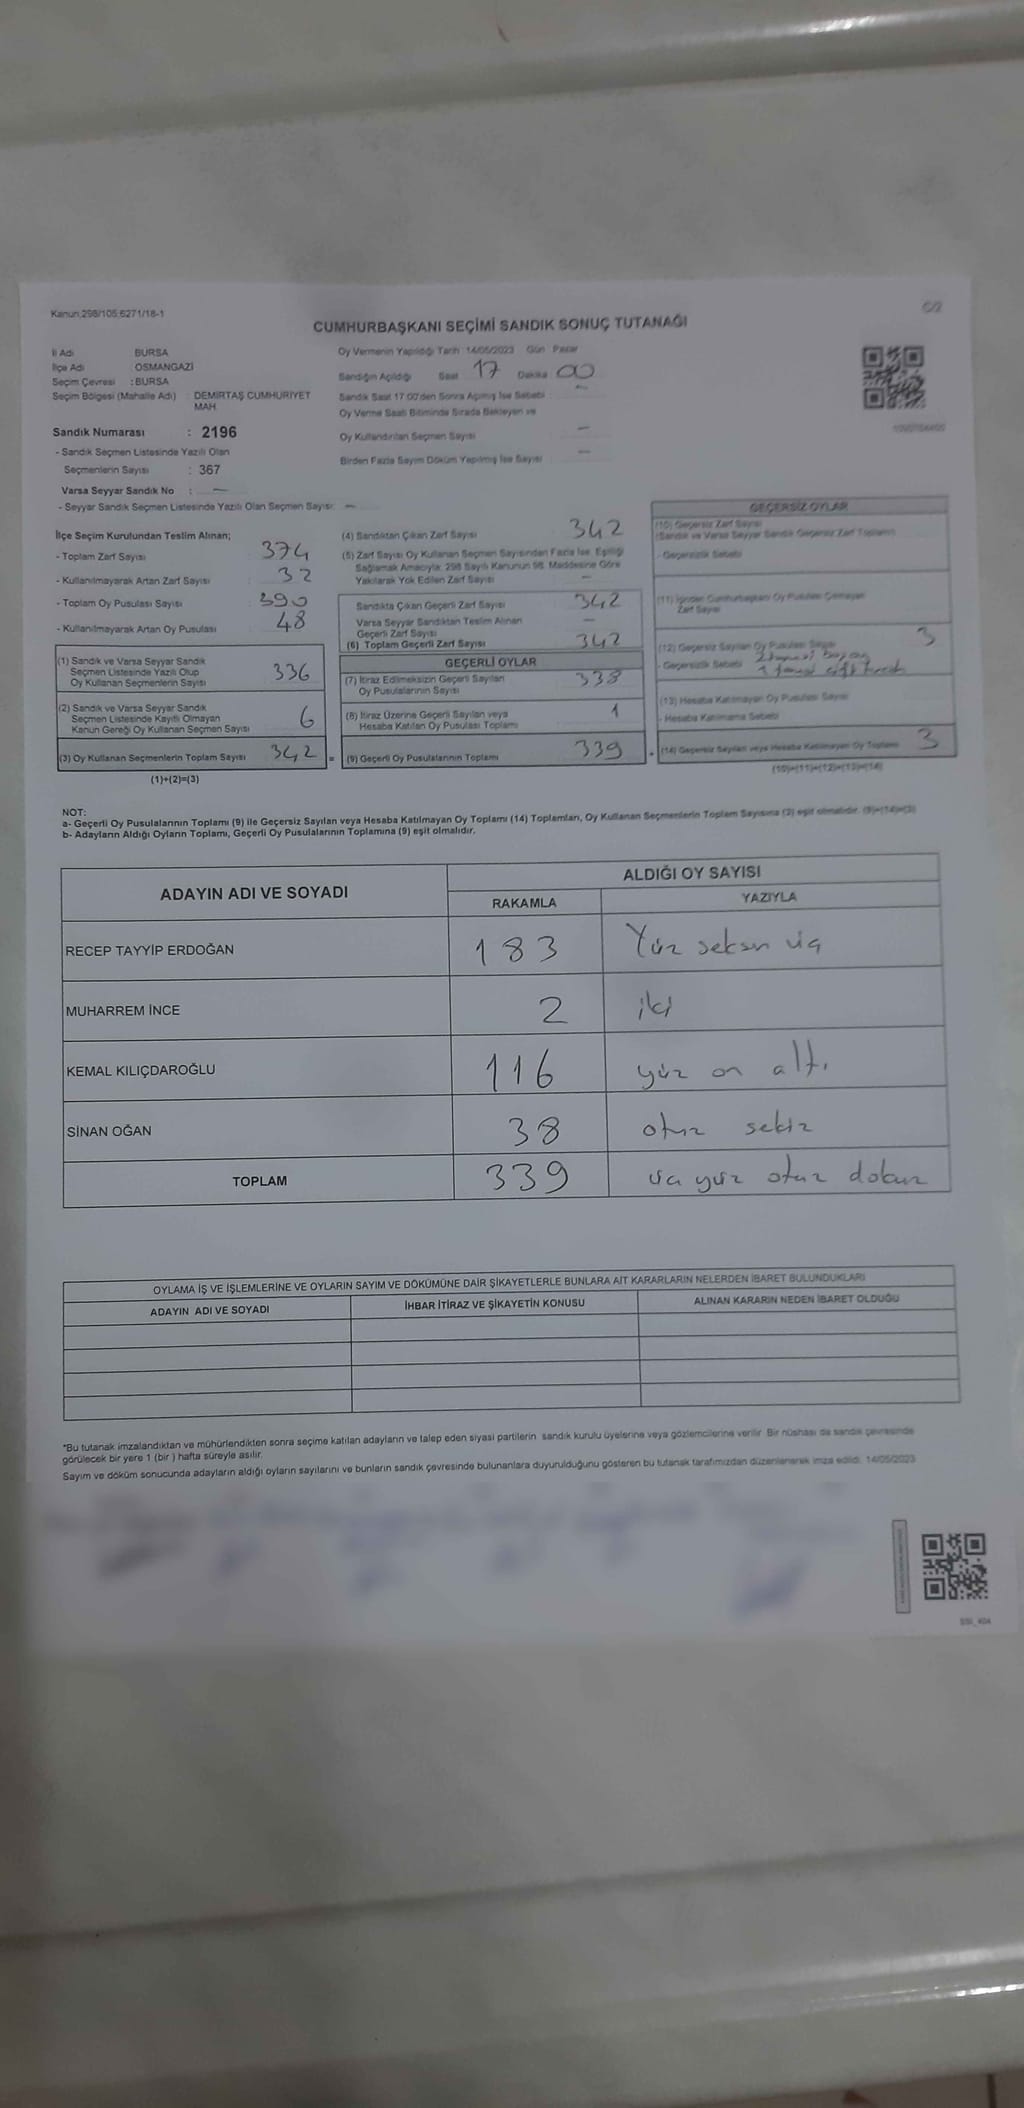 Kanun;298/105;6271/18-1
C/2
CUMHURBAŞKANI SEÇİMİ SANDIK SONUÇ TUTANAĞI
İl Adı BURSA
İlçe Adı OSMANGAZİ
Seçim Çevresi : BURSA
Seçim Bölgesi (Mahalle Adı) : DEMİRTAŞ CUMHURİYET
MAH.
Sandık Numarası : 2196
- Sandık Seçmen Listesinde Yazılı Olan
Seçmenlerin Sayısı : 367
Varsa Seyyar Sandık No : —
- Seyyar Sandık Seçmen Listesinde Yazılı Olan Seçmen Sayısı: —
Oy Vermenin Yapıldığı Tarih 14/05/2023 Gün Pazar
Sandığın Açıldığı Saat 17 Dakika 00
Sandık Saat 17:00'den Sonra Açılmış İse Sebebi —
Oy Verme Saati Bitiminde Sırada Bekleyen ve
Oy Kullandırılan Seçmen Sayısı —
Birden Fazla Sayım Döküm Yapılmış İse Sayısı —
İlçe Seçim Kurulundan Teslim Alınan;
- Toplam Zarf Sayısı 374
- Kullanılmayarak Artan Zarf Sayısı : 32
- Toplam Oy Pusulası Sayısı : 390
- Kullanılmayarak Artan Oy Pusulası : 48
(1) Sandık ve Varsa Seyyar Sandık
Seçmen Listesinde Yazılı Olup
Oy Kullanan Seçmenlerin Sayısı 336
(2) Sandık ve Varsa Seyyar Sandık
Seçmen Listesinde Kayıtlı Olmayan
Kanun Gereği Oy Kullanan Seçmen Sayısı 6
(3) Oy Kullanan Seçmenlerin Toplam Sayısı 342 =
(1)+(2)=(3)
(4) Sandıktan Çıkan Zarf Sayısı 342
(5) Zarf Sayısı Oy Kullanan Seçmen Sayısından Fazla İse, Eşitliği
Sağlamak Amacıyla; 298 Sayılı Kanunun 98. Maddesine Göre
Yakılarak Yok Edilen Zarf Sayısı —
Sandıkta Çıkan Geçerli Zarf Sayısı 342
Varsa Seyyar Sandıktan Teslim Alınan
Geçerli Zarf Sayısı —
(6) Toplam Geçerli Zarf Sayısı 342
GEÇERLİ OYLAR
(7) İtiraz Edilmeksizin Geçerli Sayılan
Oy Pusulalarının Sayısı 338
(8) İtiraz Üzerine Geçerli Sayılan veya
Hesaba Katılan Oy Pusulası Toplamı 1
(9) Geçerli Oy Pusulalarının Toplamı 339 +
GEÇERSİZ OYLAR
(10) Geçersiz Zarf Sayısı
(Sandık ve Varsa Seyyar Sandık Geçersiz Zarf Toplamı)
- Geçersizlik Sebebi
(11) İçinden Cumhurbaşkanı Oy Pusulası Çıkmayan
Zarf Sayısı
(12) Geçersiz Sayılan Oy Pusulası Sayısı 3
- Geçersizlik Sebebi 2 tanesi boş oy
1 tanesi çift tercih
(13) Hesaba Katılmayan Oy Pusulası Sayısı
- Hesaba Katılmama Sebebi
(14) Geçersiz Sayılan veya Hesaba Katılmayan Oy Toplamı 3
(10)+(11)+(12)+(13)=(14)
NOT:
a- Geçerli Oy Pusulalarının Toplamı (9) ile Geçersiz Sayılan veya Hesaba Katılmayan Oy Toplamı (14) Toplamları, Oy Kullanan Seçmenlerin Toplam Sayısına (3) eşit olmalıdır. (9)+(14)=(3)
b- Adayların Aldığı Oyların Toplamı, Geçerli Oy Pusulalarının Toplamına (9) eşit olmalıdır.
ADAYIN ADI VE SOYADI
ALDIĞI OY SAYISI
RAKAMLA YAZIYLA
RECEP TAYYİP ERDOĞAN 183 Yüz seksen üç
MUHARREM İNCE 2 iki
KEMAL KILIÇDAROĞLU 116 yüz on altı
SİNAN OĞAN 38 otuz sekiz
TOPLAM 339 üç yüz otuz dokuz
OYLAMA İŞ VE İŞLEMLERİNE VE OYLARIN SAYIM VE DÖKÜMÜNE DAİR ŞİKAYETLERLE BUNLARA AİT KARARLARIN NELERDEN İBARET BULUNDUKLARI
ADAYIN ADI VE SOYADI İHBAR İTİRAZ VE ŞİKAYETİN KONUSU ALINAN KARARIN NEDEN İBARET OLDUĞU
*Bu tutanak imzalandıktan ve mühürlendikten sonra seçime katılan adayların ve talep eden siyasi partilerin sandık kurulu üyelerine veya gözlemcilerine verilir. Bir nüshası da sandık çevresinde
görülecek bir yere 1 (bir ) hafta süreyle asılır.
Sayım ve döküm sonucunda adayların aldığı oyların sayılarını ve bunların sandık çevresinde bulunanlara duyurulduğunu gösteren bu tutanak tarafımızdan düzenlenerek imza edildi. 14/05/2023